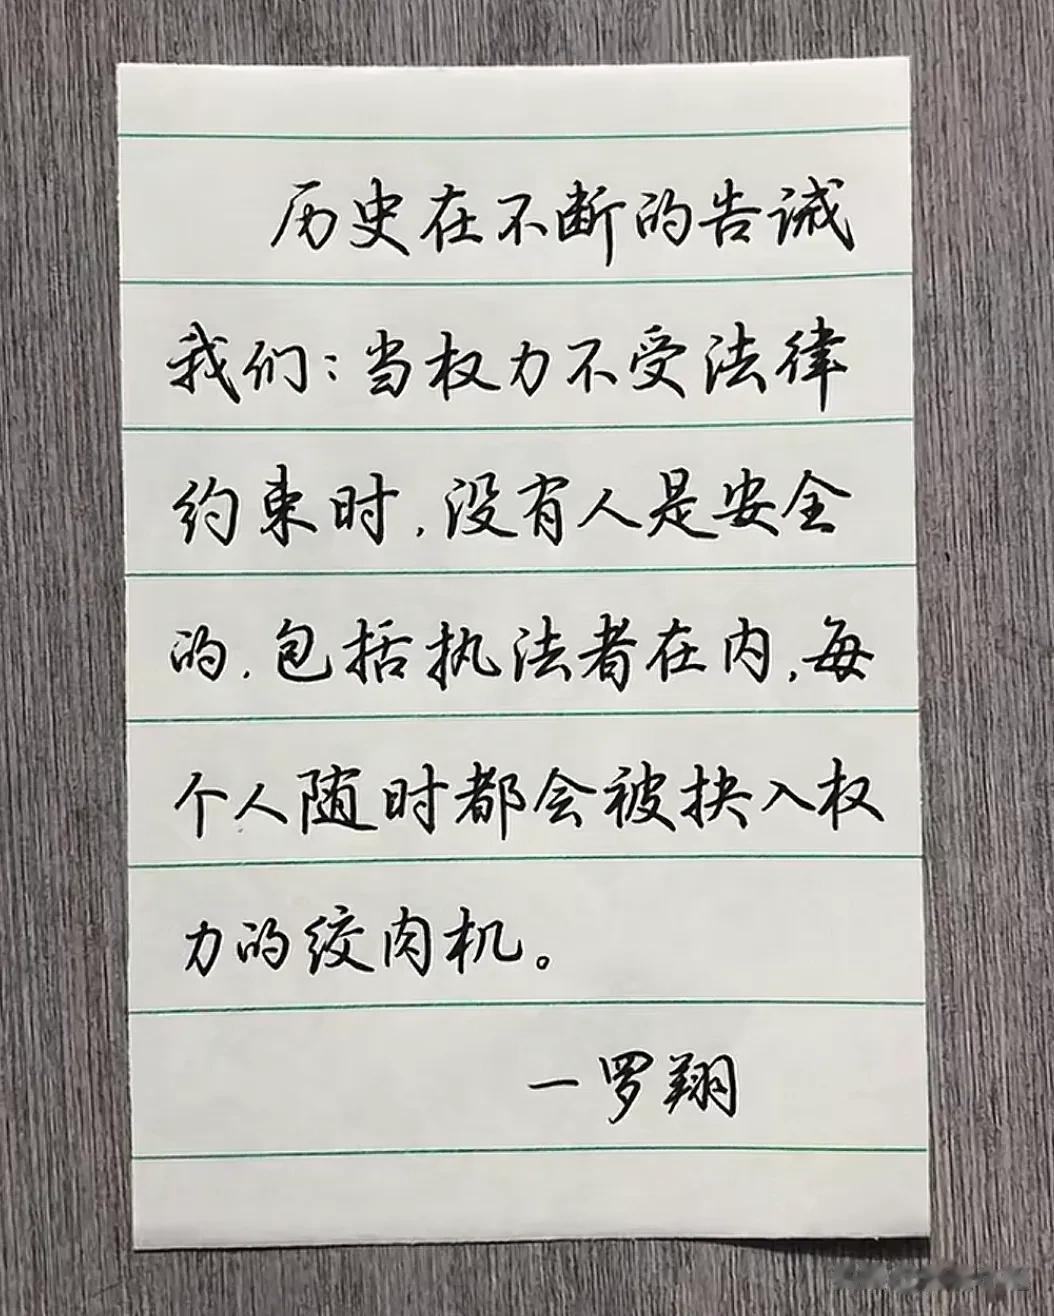 历史在不断的告诫
我们：当权力不受法律
约束时，没有人是安全
的，包括执法者在内，每
个人随时都会被抉入权
力的绞肉机。
—罗翔